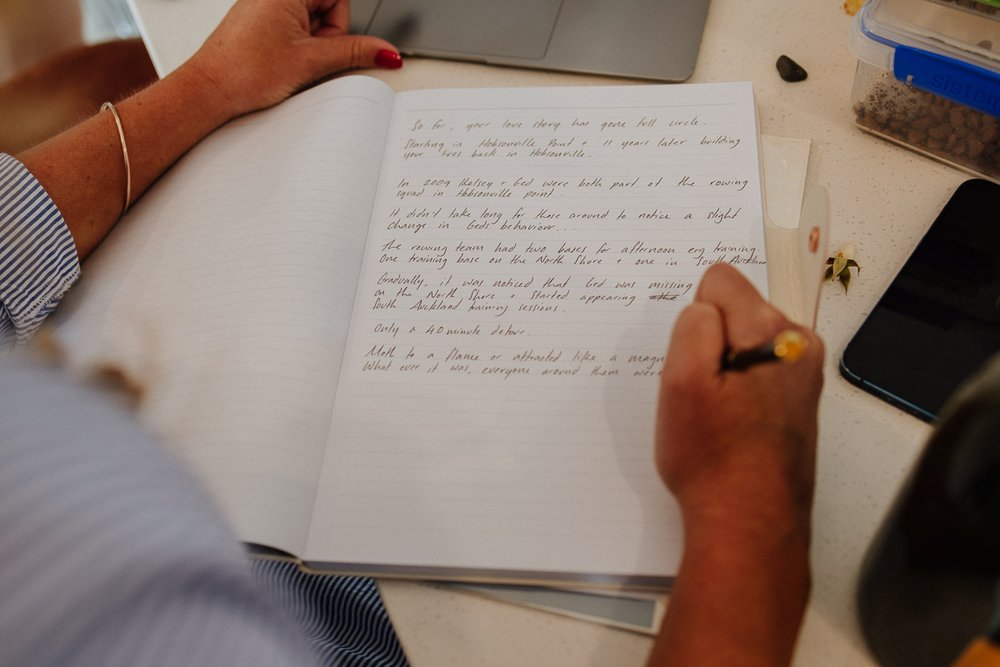 So far, your love story has gone full circle.
Starting in Hobsonville Point + 11 years later building
your lives back in Hobsonville.
In 2009 + Ged were both part of the rowing
squad in Hobsonville point...
It didn't take long for those around to notice a slight
change in Geds behaviour....
The rowing team had two bases for afternoon erg training.
One training base on the North Shore + one in South Auckland
Gradually, it was noticed that Ged was missing
on the North Shore + started appearing
South Auckland training sessions.
Only a 40 minute detour.
Moth to a flame or attracted like a magn
What ever it was, everyone around them were
sistema